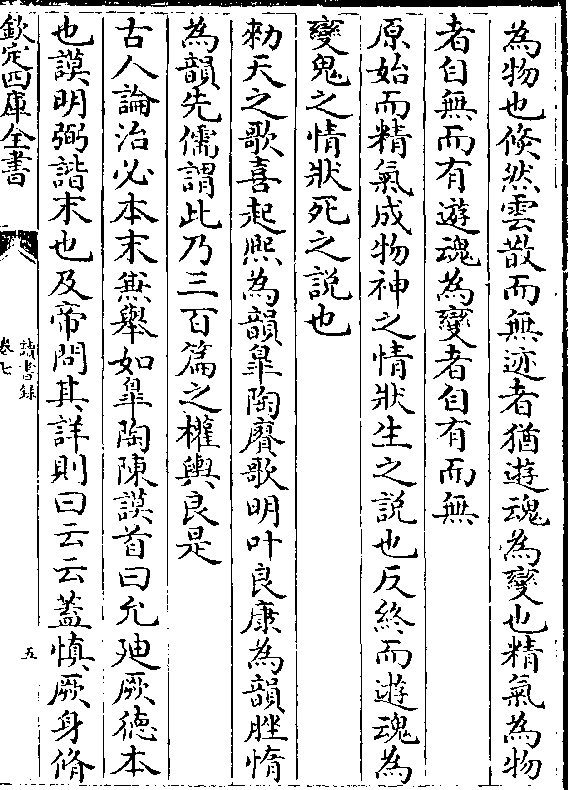 為物也倏然雲散而無迹者猶遊魂為變也精氣為物
者自無而有遊魂為變者自有而無
原始而精氣成物神之情狀生之説也反終而遊魂為
變鬼之情狀死之説也
勑天之歌喜起熈為韻臯陶賡歌明叶良康為韻脞惰
為韻先儒謂此乃三百篇之權輿良是
古人論治必本末無舉如臯陶陳謨首曰允廸厥德本
也謨明弼諧末也及帝問其詳則曰云云蓋慎厥身脩
欽定四庫全書
讀書録
卷七
五